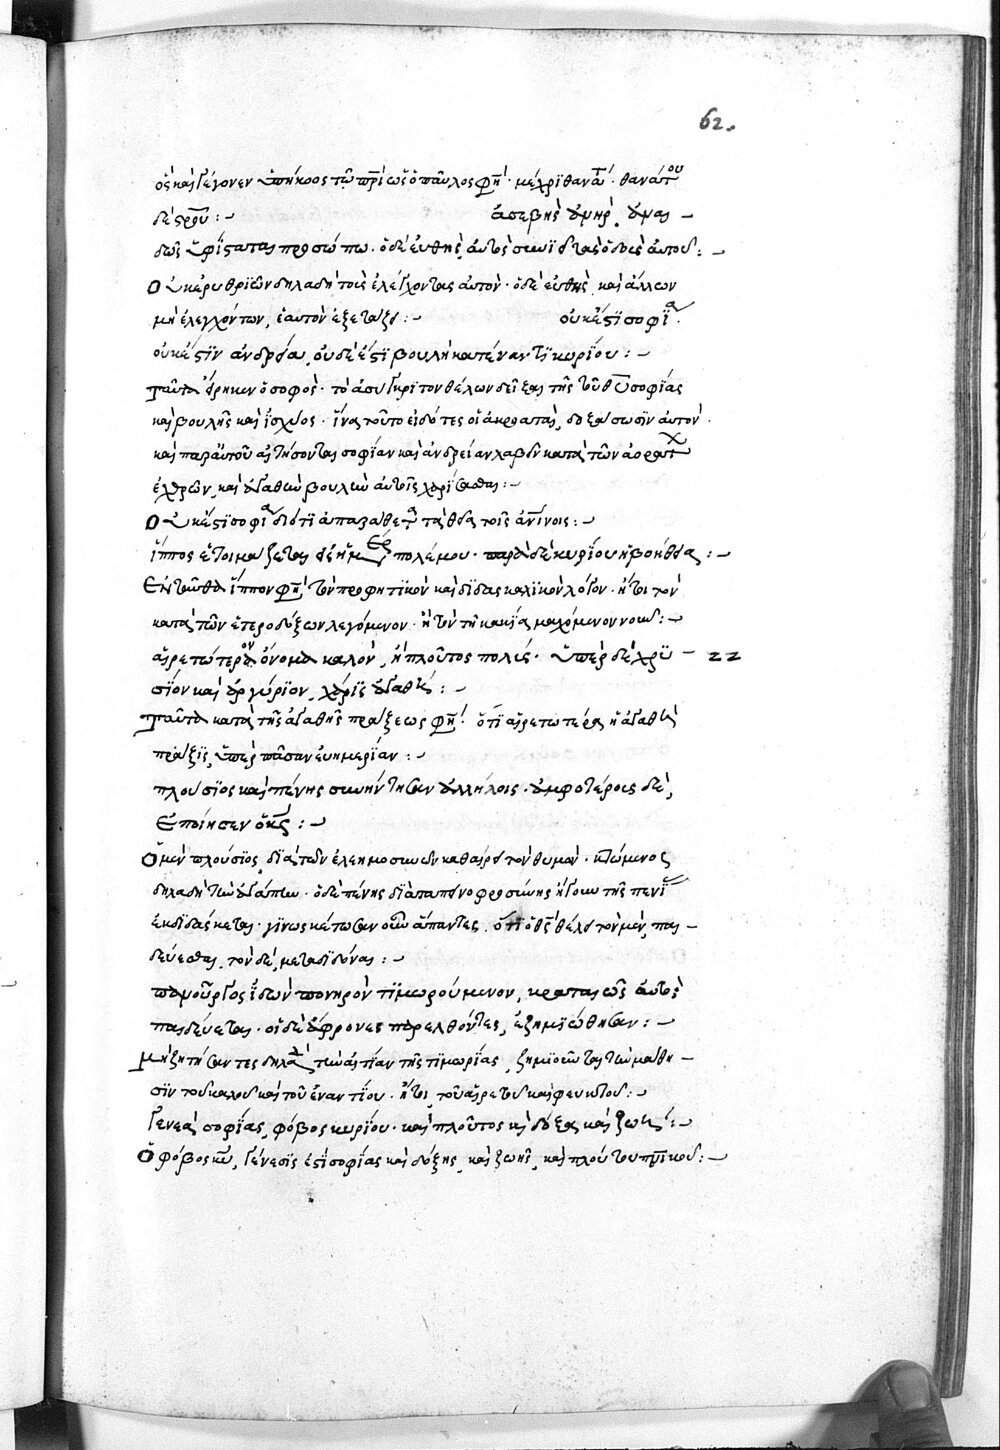 62.
ὃς καὶ γέγονεν ὑπήκοος τῷ πρὶ ὡς ὁ παῦλος φησί· μέχρι θανάτου· θανάτου
δὲ σταυροῦ :– ἀσεβὴς ἀνὴρ, ἀναι–
δῶς ὑφίσταται προσώπω· ὁ δὲ εὐθὴς, αὐτὸς συνιεῖ τὰς ὁδοὺς αὐτοῦ :–
Οὐκ ἐρυθριῶν δηλαδὴ τοὺς ἐλέγχοντας αὐτόν· ὁ δὲ εὐθὴς, καὶ ἄλλων
μὴ ἐλεγχόντων, ἑαυτὸν ἐξετάζει :– οὐκ ἔστι σοφία·
οὐκ ἔστιν ἀνδρεία, οὐδὲ ἔστι βουλὴ κατέναντι κυρίου :–
Ταῦτα εἴρηκεν ὁ σοφὸς· τὸ ἀσύγκριτον θέλων δεῖξαι τῆς τοῦ θῦ σοφίας
καὶ βουλῆς καὶ ἰσχύος· ἵνα τοῦτο εἰδότες οἱ ἀκροαταὶ, δοξάσωσιν αὐτόν·
καὶ παρ' αὐτοῦ αἰτήσονται σοφίαν καὶ ἀνδρείαν λαβεῖν κατὰ τῶν ἀοράτων
ἐχθρῶν, καὶ ἀγαθῶν βουλὴν αὐτοῖς χαρίσασθαι :–
Οὐκ ἔστι σοφία διότι ἀκατάθετα τὰ θεῖα τοῖς ἀνίνοις :–
ἵππος ἑτοιμάζεται εἰς ἡμέραν πολέμου· παρὰ δὲ κυρίου ἡ βοήθεια :–
Ἐνταῦθα ἵππον φησὶ τὸν προφητικὸν καὶ διδασκαλικὸν λόγον· ἤτοι τὸν
κατὰ τῶν ἑτεροδόξων λεγόμενον· ἢ τὸν τῇ κακίᾳ μαχόμενον νοῦν :–
αἱρετώτερον ὄνομα καλὸν, ἢ πλοῦτος πολύς· ὑπὲρ δὲ χρυ– 22
σίον καὶ ἀργύριον, χάρις ἀγαθή :–
Ταῦτα κατὰ τῆς ἀγαθῆς πράξεως φησί· ὅτι αἱρετωτέρα ἡ ἀγαθὴ
πρᾶξις, ὑπὲρ πᾶσαν εὐημερίαν :–
πλούσιος καὶ πένης συνήντησαν ἀλλήλοις· ἀμφοτέρους δὲ,
Ἐποίησεν ὁ κς :–
Ὁ μὲν πλούσιος, διὰ τῶν ἐλεημοσυνῶν καθαίρει τὸν θυμόν· κτώμενος
δηλαδὴ τὴν ἀγάπην· ὁ δὲ πένης διὰ ταπεινοφροσύνης ἤγουν τῆς πενίας
ἐκδιδάσκεται· γινωσκέτωσαν οὖν ἅπαντες, ὅτι ὁ θς θέλει τὸν μὲν, παι–
δεύεσθαι, τὸν δὲ, μεταδιδόναι :–
πανοῦργος ἰδὼν πονηρὸν τιμωρούμενον, κραταιῶς αὐτὸς
παιδεύεται· οἱ δὲ ἄφρονες παρελθόντες, ἐζημιώθησαν :–
μὴ ζητήσαντες δηλαδὴ τὴν αἰτίαν τῆς τιμωρίας, ζημιοῦνται τὴν μάθη–
σιν τοῦ καλοῦ καὶ τοῦ ἐναντίου· ἤτοι, τοῦ αἱρετοῦ καὶ φευκτοῦ :–
γενεὰ σοφίας, φόβος κυρίου· καὶ πλοῦτος καὶ δόξα καὶ ζωή :–
Ὁ φόβος κυ, γένεσις ἐστὶ σοφίας καὶ δόξης, καὶ ζωῆς, καὶ πλούτου πνικοῦ :–